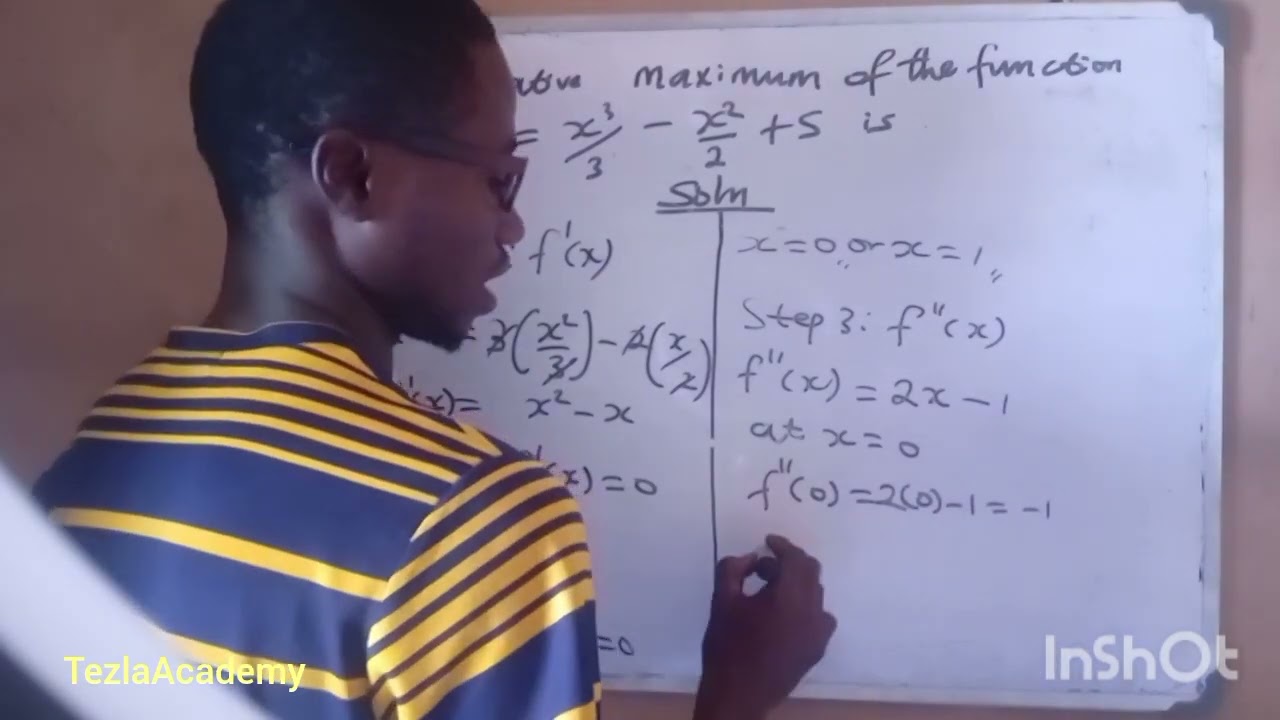 maximum of the function
= x³/3 - x²/2 + 5 is
Soln
f'(x)
= 3(x²/3) - 2(x/2)
(x) = x² - x
(x) = 0
=0
x = 0,, or x = 1,,
Step 3: f"(x)
f"(x) = 2x - 1
at x = 0
f"(0) = 2(0) - 1 = -1
TezlaAcademy
InShOt